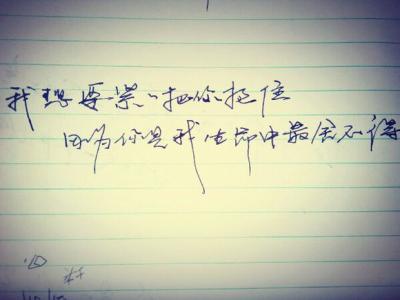 我想要紧〃把你抱住
因为你是我生命中最舍不得